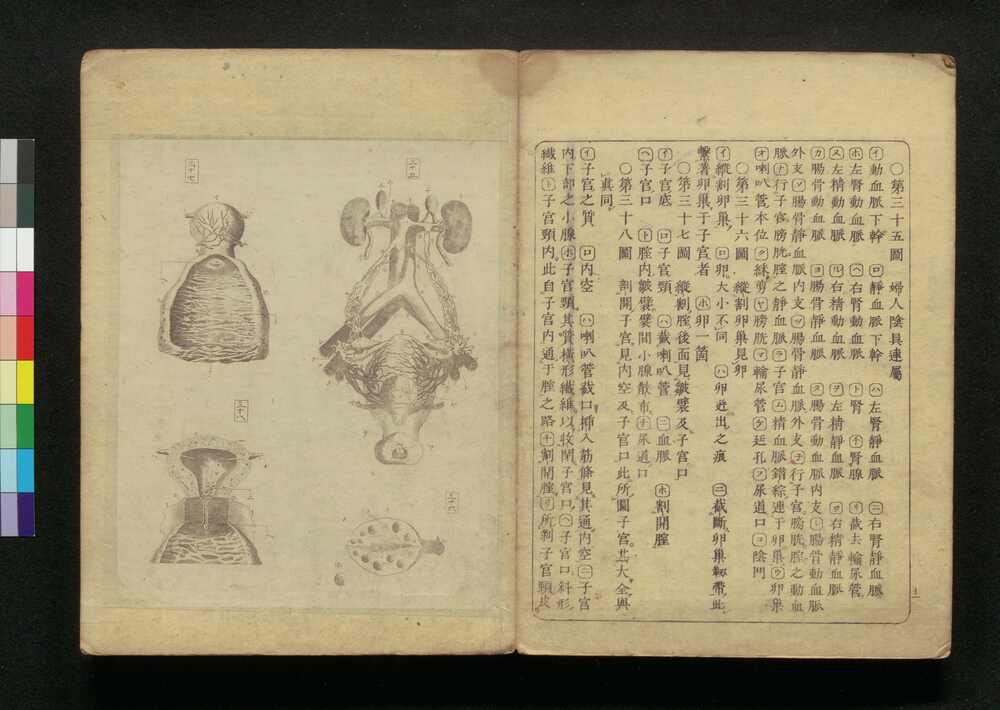 〇第三十五圖　婦人陰具連屬
㋑動血脈下幹　㋺靜血脈下幹　㋩左腎靜血脈　㋥右腎靜血脈
㋭左腎動血脈　㋬右腎動血脈　㋣腎　㋠腎腺　㋷截去輸尿管
㋦左精動血脈　㋸右精動血脈　㋾左精靜血脈　㋻右精靜血脈
㋕腸骨動血脈　㋵腸骨靜血脈　㋟腸骨動血脈內支　㋹腸骨動血脈
外支㋞腸骨靜血脈內支㋡腸骨靜血脈外支㋧行子宮膀胱腟之動血
脈㋤行子宮膀胱腟之靜血脈㋶子宮㋰精血脈錯綜連于卵巢㋒卵巢
㋔喇叭管本位㋗ ㋳膀胱㋮輸尿管㋘廷孔㋫尿道口㋙陰門
〇第三十六圖　縱割卵巢見卵
㋑縱割卵巢　㋺卵大小不同　㋩卵迸出之痕　㋥截斷卵巢靱帶此
繫著卵巢于子宮者　㋭卵一箇
〇第三十七圖　縱割腟後面見皺襞及子宮口
㋑子宮底　㋺子宮頸　㋩截喇叭管　㋥血脈　㋭割開腟
㋬子宮口　㋣腟內皺襞襞間小腺散布㋠尿道口
〇第三十八圖　割開子宮見內空及子宮口此所圖子宮其大全與
真同
㋑子宮之質　㋺內空　㋩喇叭管截口揷入筋條見其通內空㋥子宮
內下部之小腺㋭子宮頸其質橫形纖維以收閉子宮口㋬子宮口斜形
纖維㋣子宮頸內此自子宮內通于腟之路㋠割開腟㋷所剝子宮頸皮
三十五
三十六
三十七
三十八